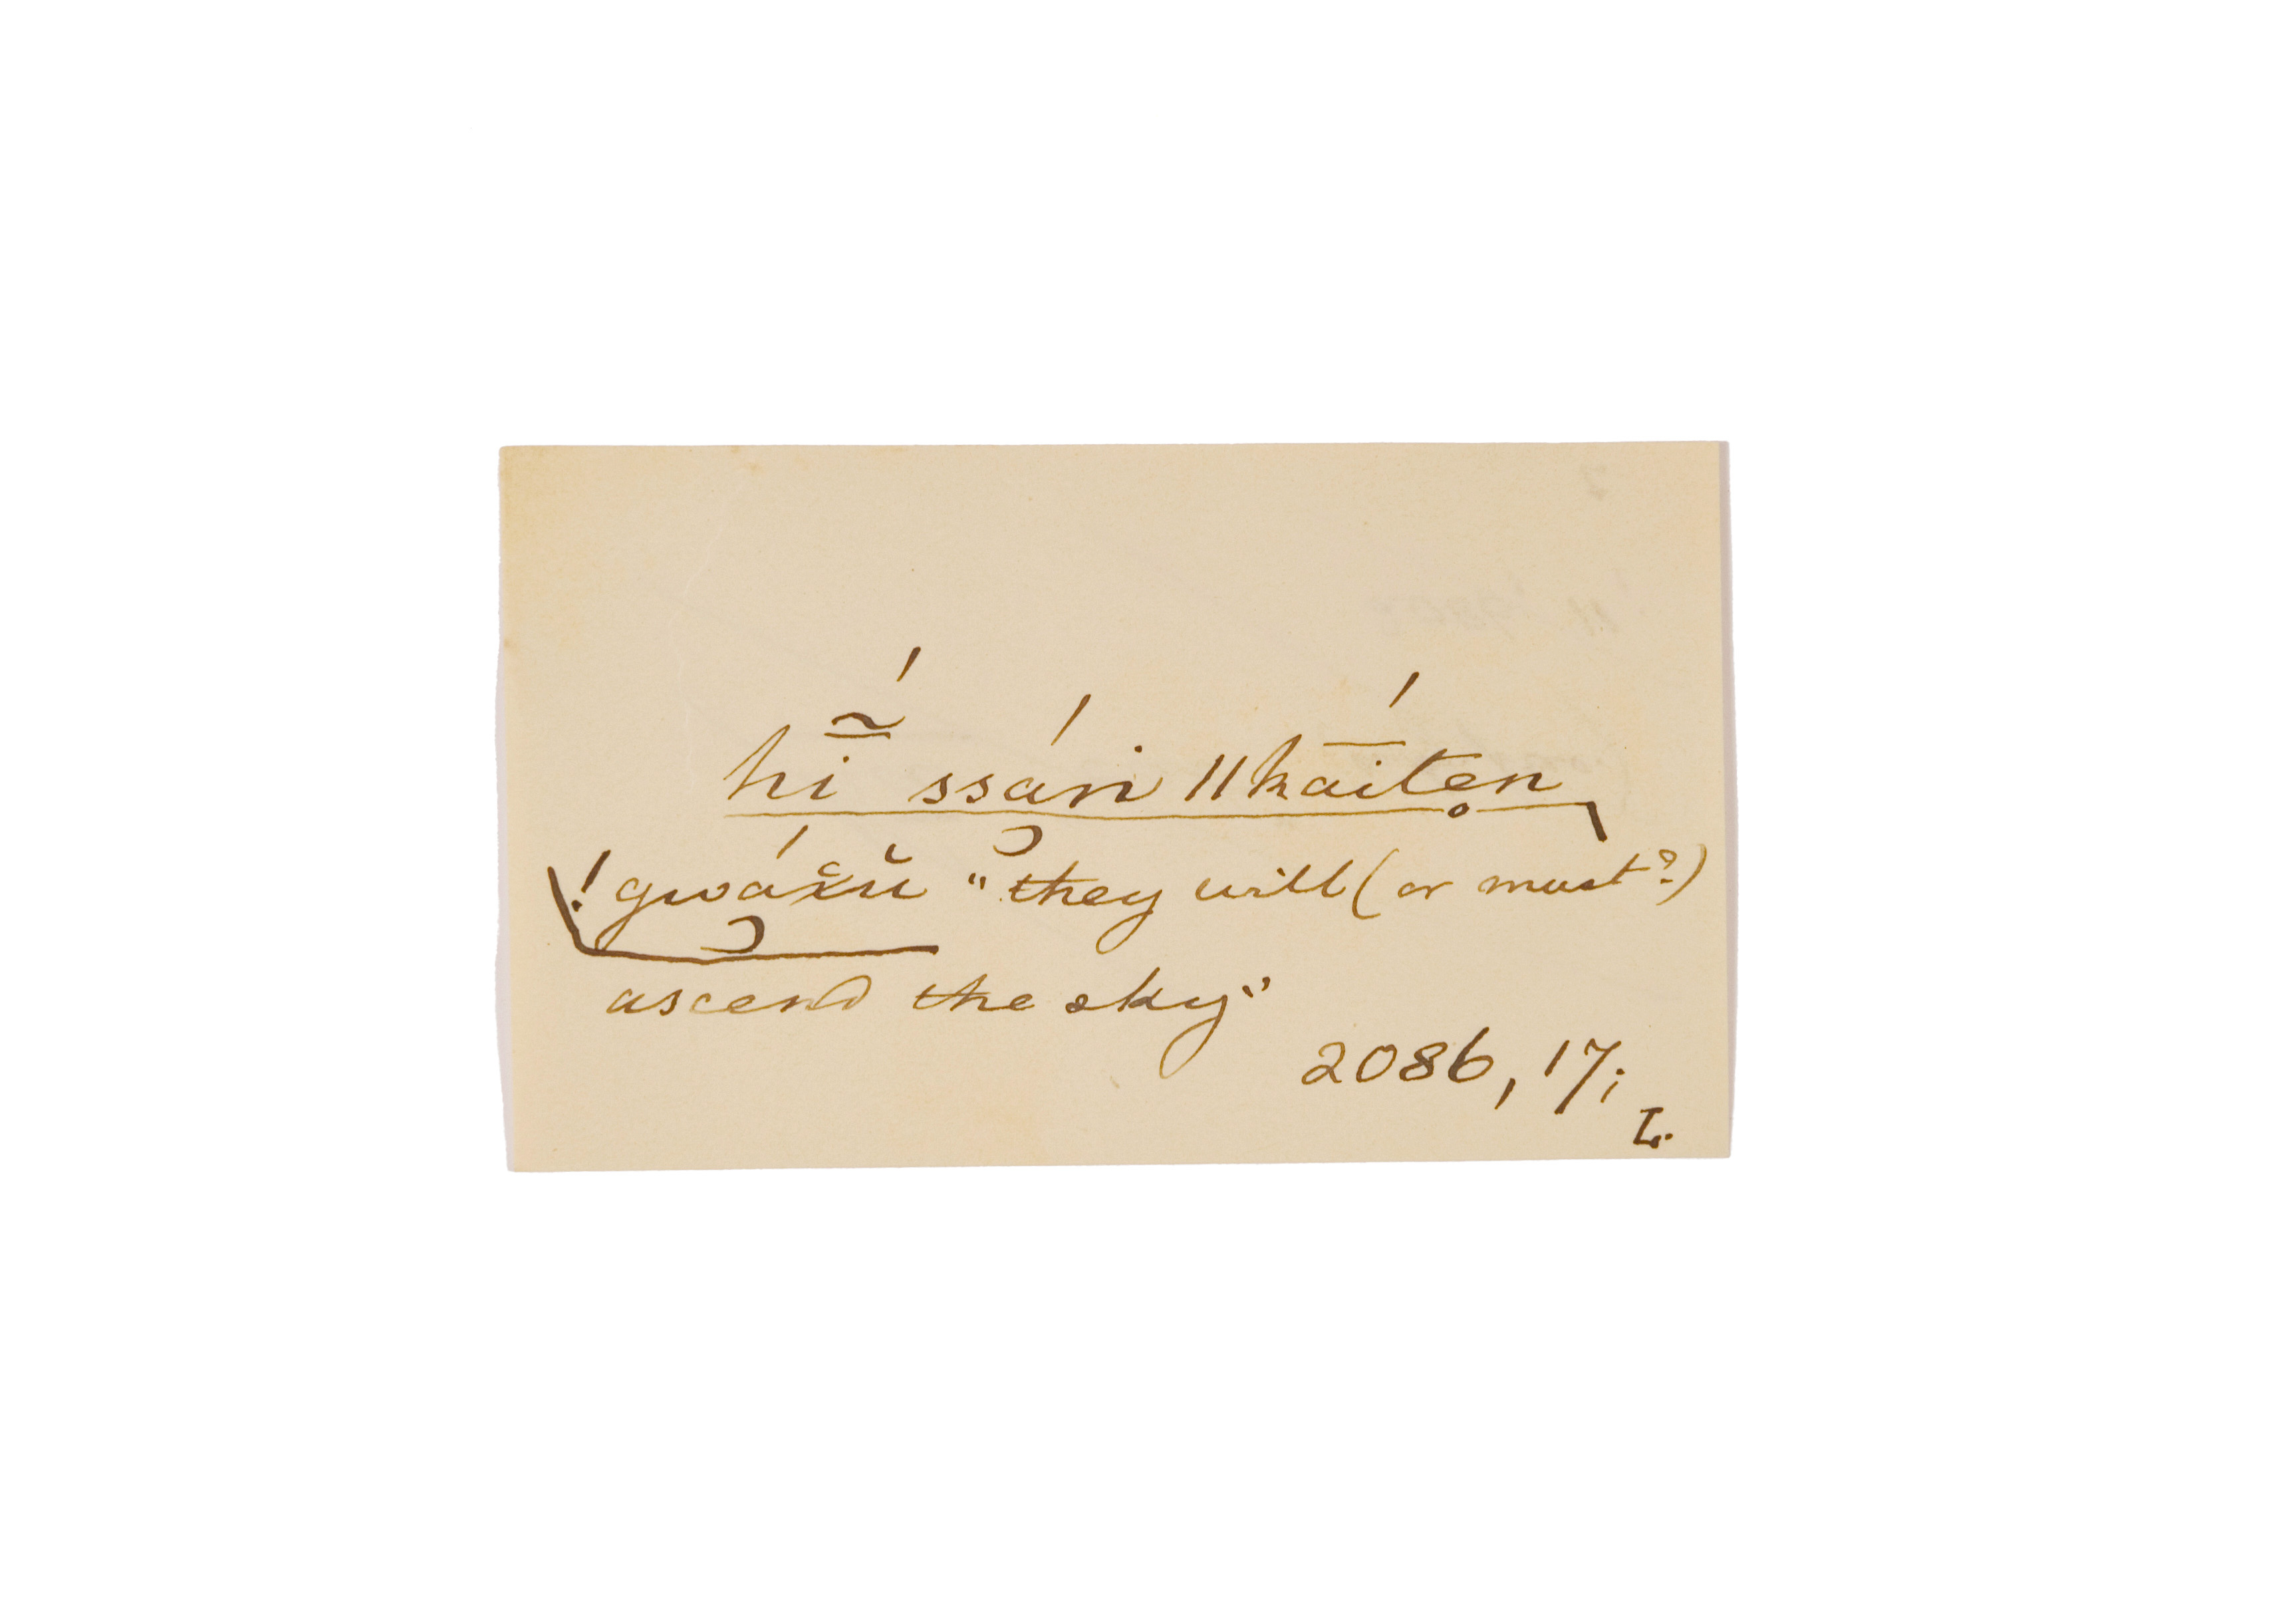 hī̃́ ssá̰ri ǁkā́itẹn
!gwáx̑ŭ "they will (or must?)
ascend the sky"
2086, 17;
L.